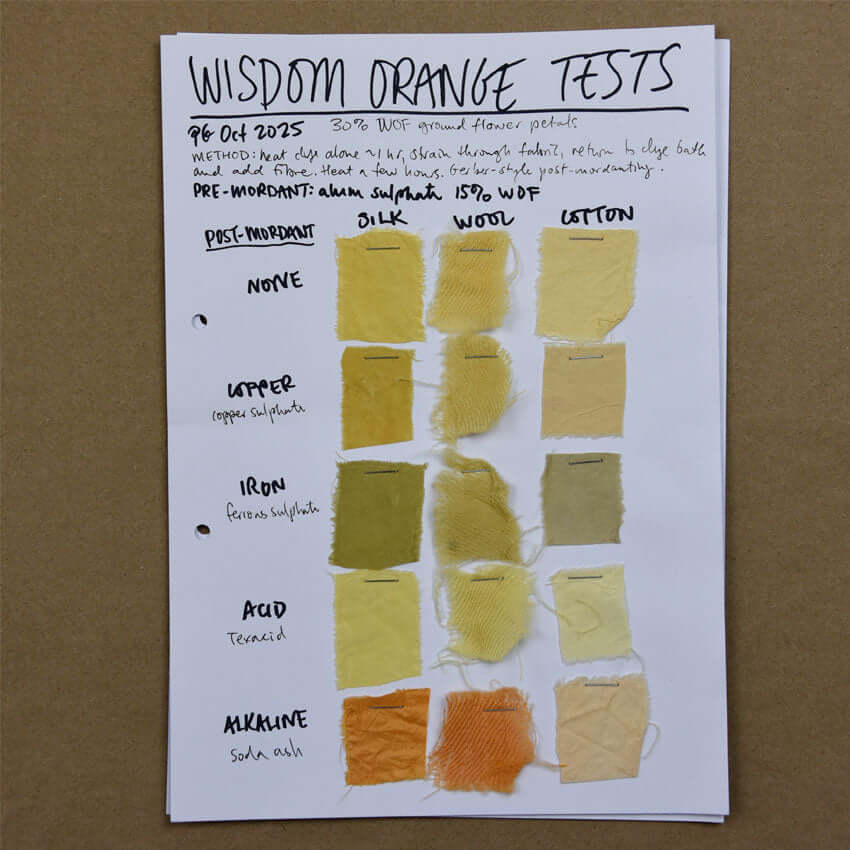 WISDOM ORANGE TESTS
PG Oct 2025 30% WOF ground flower petals
METHOD: heat dye alone ~1 hr, strain through fabric, return to dye bath
and add fibre. Heat a few hours. Gerber-style post-mordanting.
PRE-MORDANT: alum sulphate 15% WOF
SILK WOOL COTTON
POST-MORDANT
NONE
COPPER
copper sulphate
IRON
ferrous sulphate
ACID
Texacid
ALKALINE
soda ash